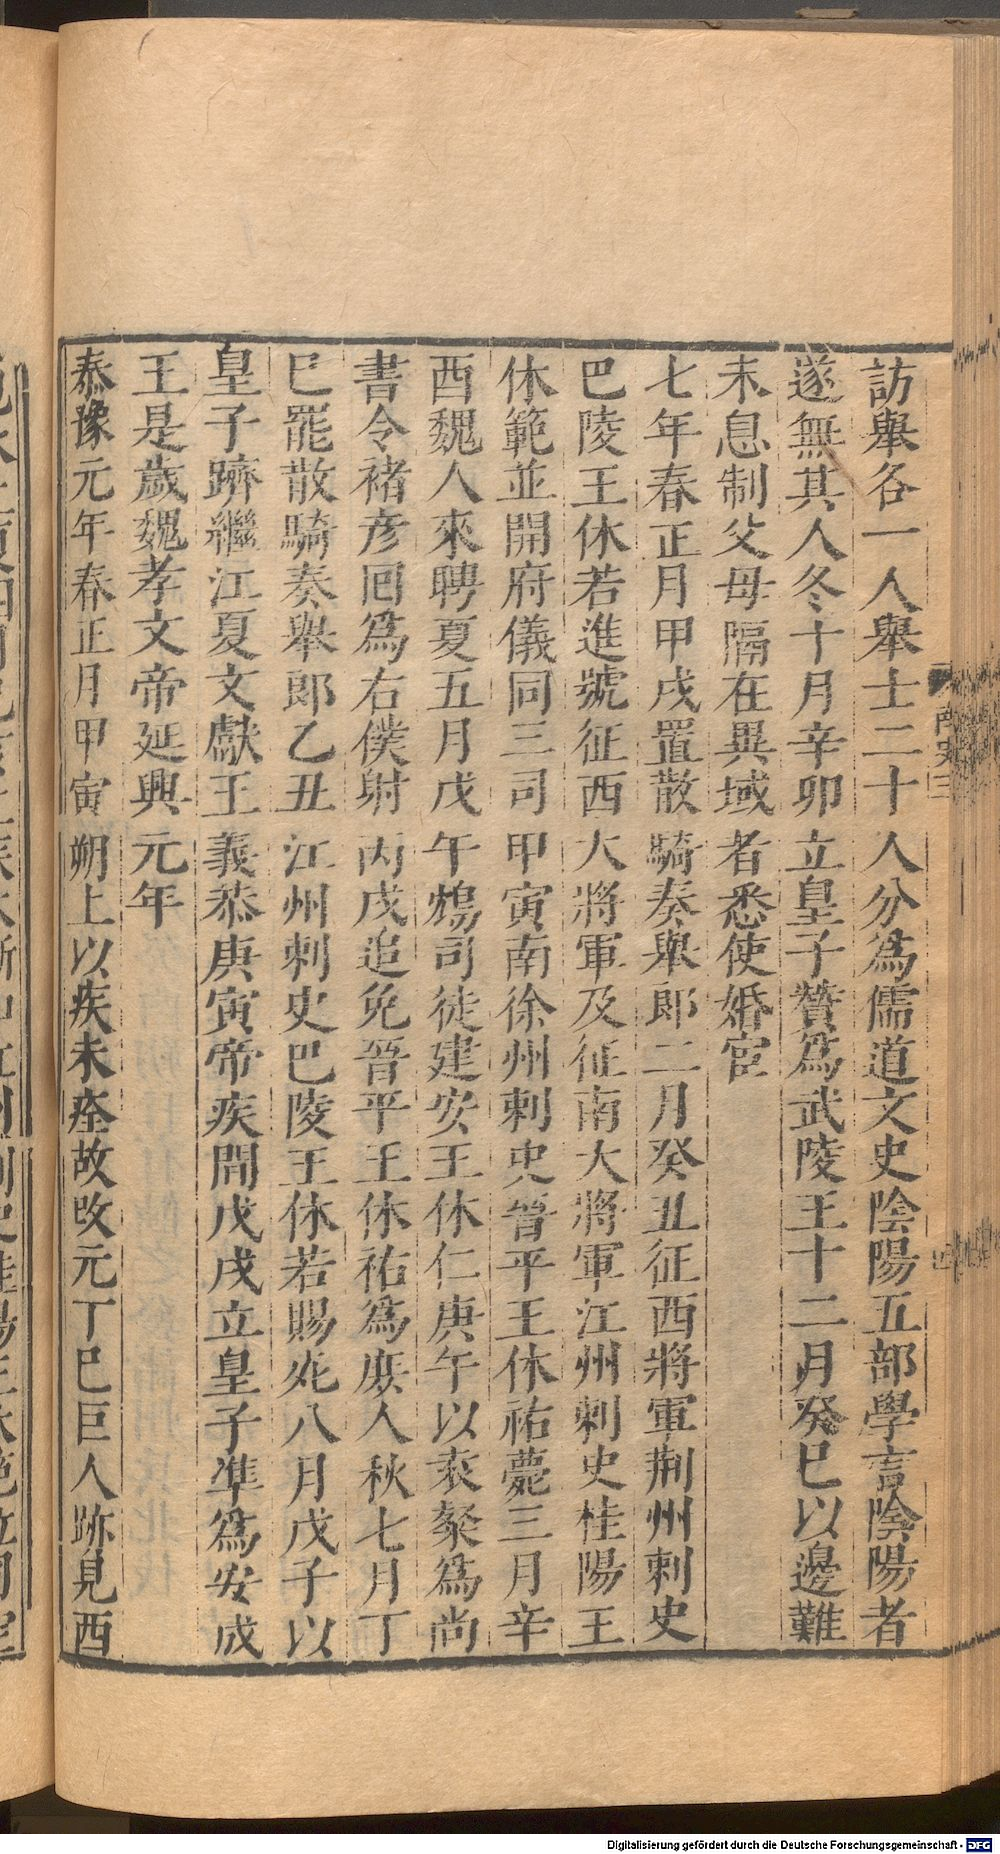 訪舉各一人舉士二十人分爲儒道文史陰陽五部學言陰陽者
遂無其人冬十月辛卯立皇子贊爲武陵王十二月癸巳以邊難
未息制父母隔在異域者悉使婚宦
七年春正月甲戌置散騎奏舉郎二月癸丑征西將軍荆州刺史
巴陵王休若進號征西大將軍及征南大將軍江州刺史桂陽王
休範並開府儀同三司甲寅南徐州刺史晉平王休祐薨三月辛
酉魏人來聘夏五月戊午鴆司徒建安王休仁庚午以袁粲爲尚
書令褚彦囘爲右僕射丙戌追免晉平王休祐爲庶人秋七月丁
巳罷散騎奏舉郎乙丑江州刺史巴陵王休若賜死八月戊子以
皇子躋繼江夏文獻王義恭庚寅帝疾間戊戌立皇子準爲安成
王是歲魏孝文帝延興元年
泰豫元年春正月甲寅朔上以疾未痊故改元丁巳巨人跡見西
南宋三
Digitalisierung gefördert durch die Deutsche Forschungsgemeinschaft - DFG